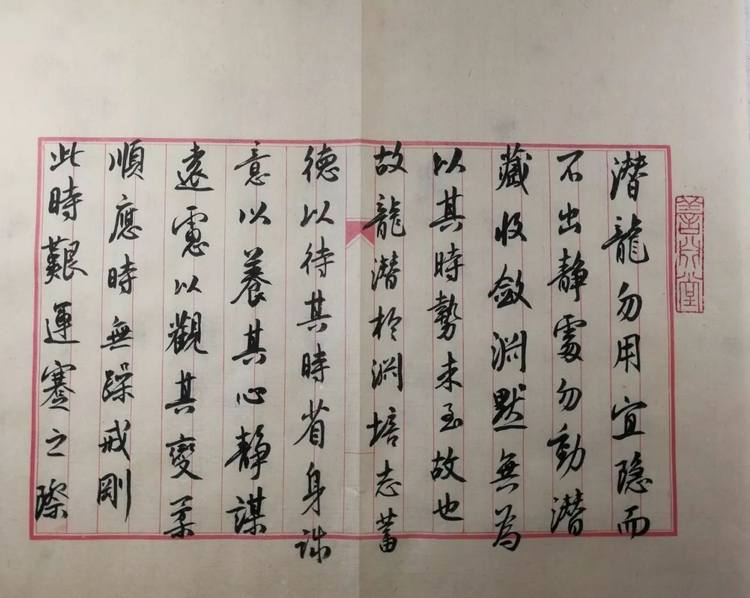 潜龍勿用宜隐而
不出静處勿動潜
藏收斂渊默無為
以其時勢未至故也
故龍潜於渊培志蓄
德以待其時省身
意以養其心静謀
遠慮以觀其變柔
順應時無躁戒剛
此時艱運蹇之際